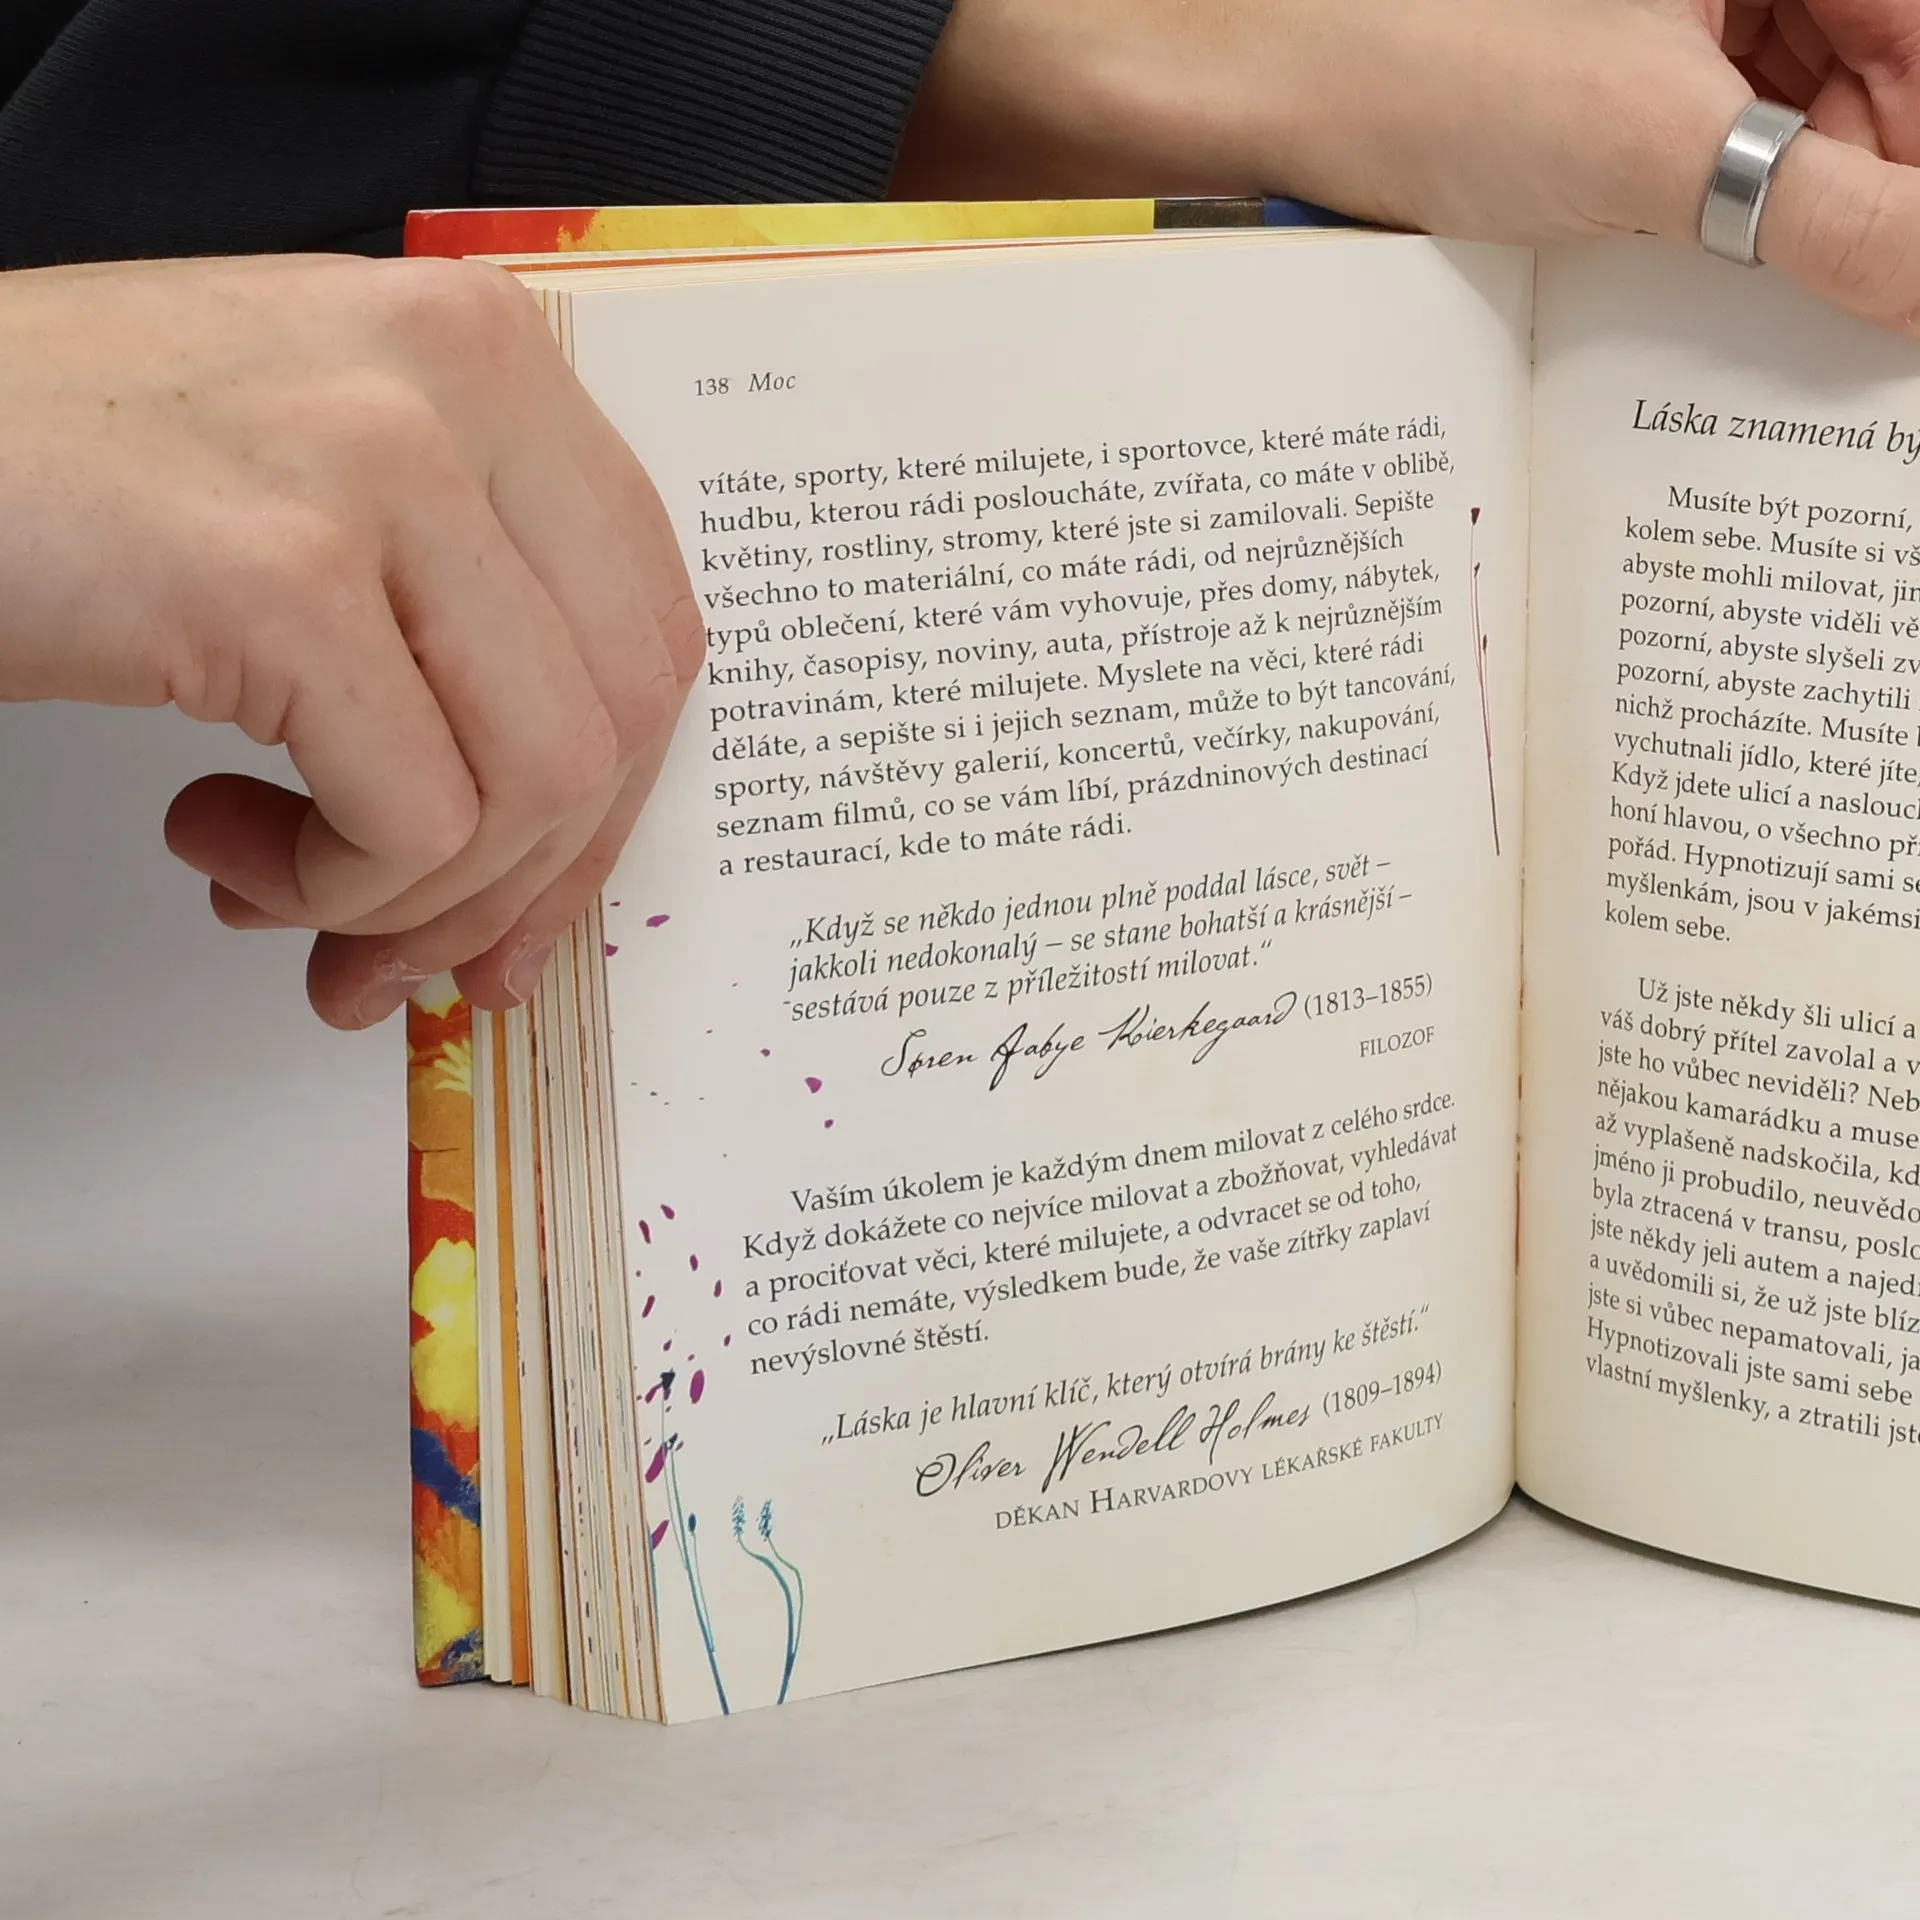 138 Moc
vítáte, sporty, které milujete, i sportovce, které máte rádi,
hudbu, kterou rádi posloucháte, zvířata, co máte v oblibě,
květiny, rostliny, stromy, které jste si zamilovali. Sepište
všechno to materiální, co máte rádi, od nejrůznějších
typů oblečení, které vám vyhovuje, přes domy, nábytek,
knihy, časopisy, noviny, auta, přístroje až k nejrůznějším
potravinám, které milujete. Myslete na věci, které rádi
děláte, a sepište si i jejich seznam, může to být tancování,
sporty, návštěvy galerií, koncertů, večírky, nakupování,
seznam filmů, co se vám líbí, prázdninových destinací
a restaurací, kde to máte rádi.
„Když se někdo jednou plně poddal lásce, svět –
jakkoli nedokonalý – se stane bohatší a krásnější –
sestává pouze z příležitostí milovat.“
Søren Aabye Kierkegaard (1813–1855)
FILOZOF
Vaším úkolem je každým dnem milovat z celého srdce.
Když dokážete co nejvíce milovat a zbožňovat, vyhledávat
a prociťovat věci, které milujete, a odvracet se od toho,
co rádi nemáte, výsledkem bude, že vaše zítřky zaplaví
nevýslovné štěstí.
„Láska je hlavní klíč, který otvírá brány ke štěstí.“
Oliver Wendell Holmes (1809–1894)
DĚKAN HARVARDOVY LÉKAŘSKÉ FAKULTY
Láska znamená
Musíte být pozorní,
kolem sebe. Musíte si
abyste mohli milovat,
pozorní, abyste viděli
pozorní, abyste slyšeli
pozorní, abyste zachytili
nichž procházíte. Musíte
vychutnali jídlo, které
Když jdete ulicí a
honí hlavou, o všechno
pořád. Hypnotizují sami
myšlenkám, jsou v
kolem sebe.
Už jste někdy šli ulicí a
váš dobrý přítel zavolal a
jste ho vůbec neviděli?
nějakou kamarádku a
až vyplašeně nadskočila,
jméno ji probudilo,
byla ztracená v transu,
jste někdy jeli autem a
a uvědomili si, že už jste
jste si vůbec nepamatovali,
Hypnotizovali jste sami sebe
vlastní myšlenky, a ztratili